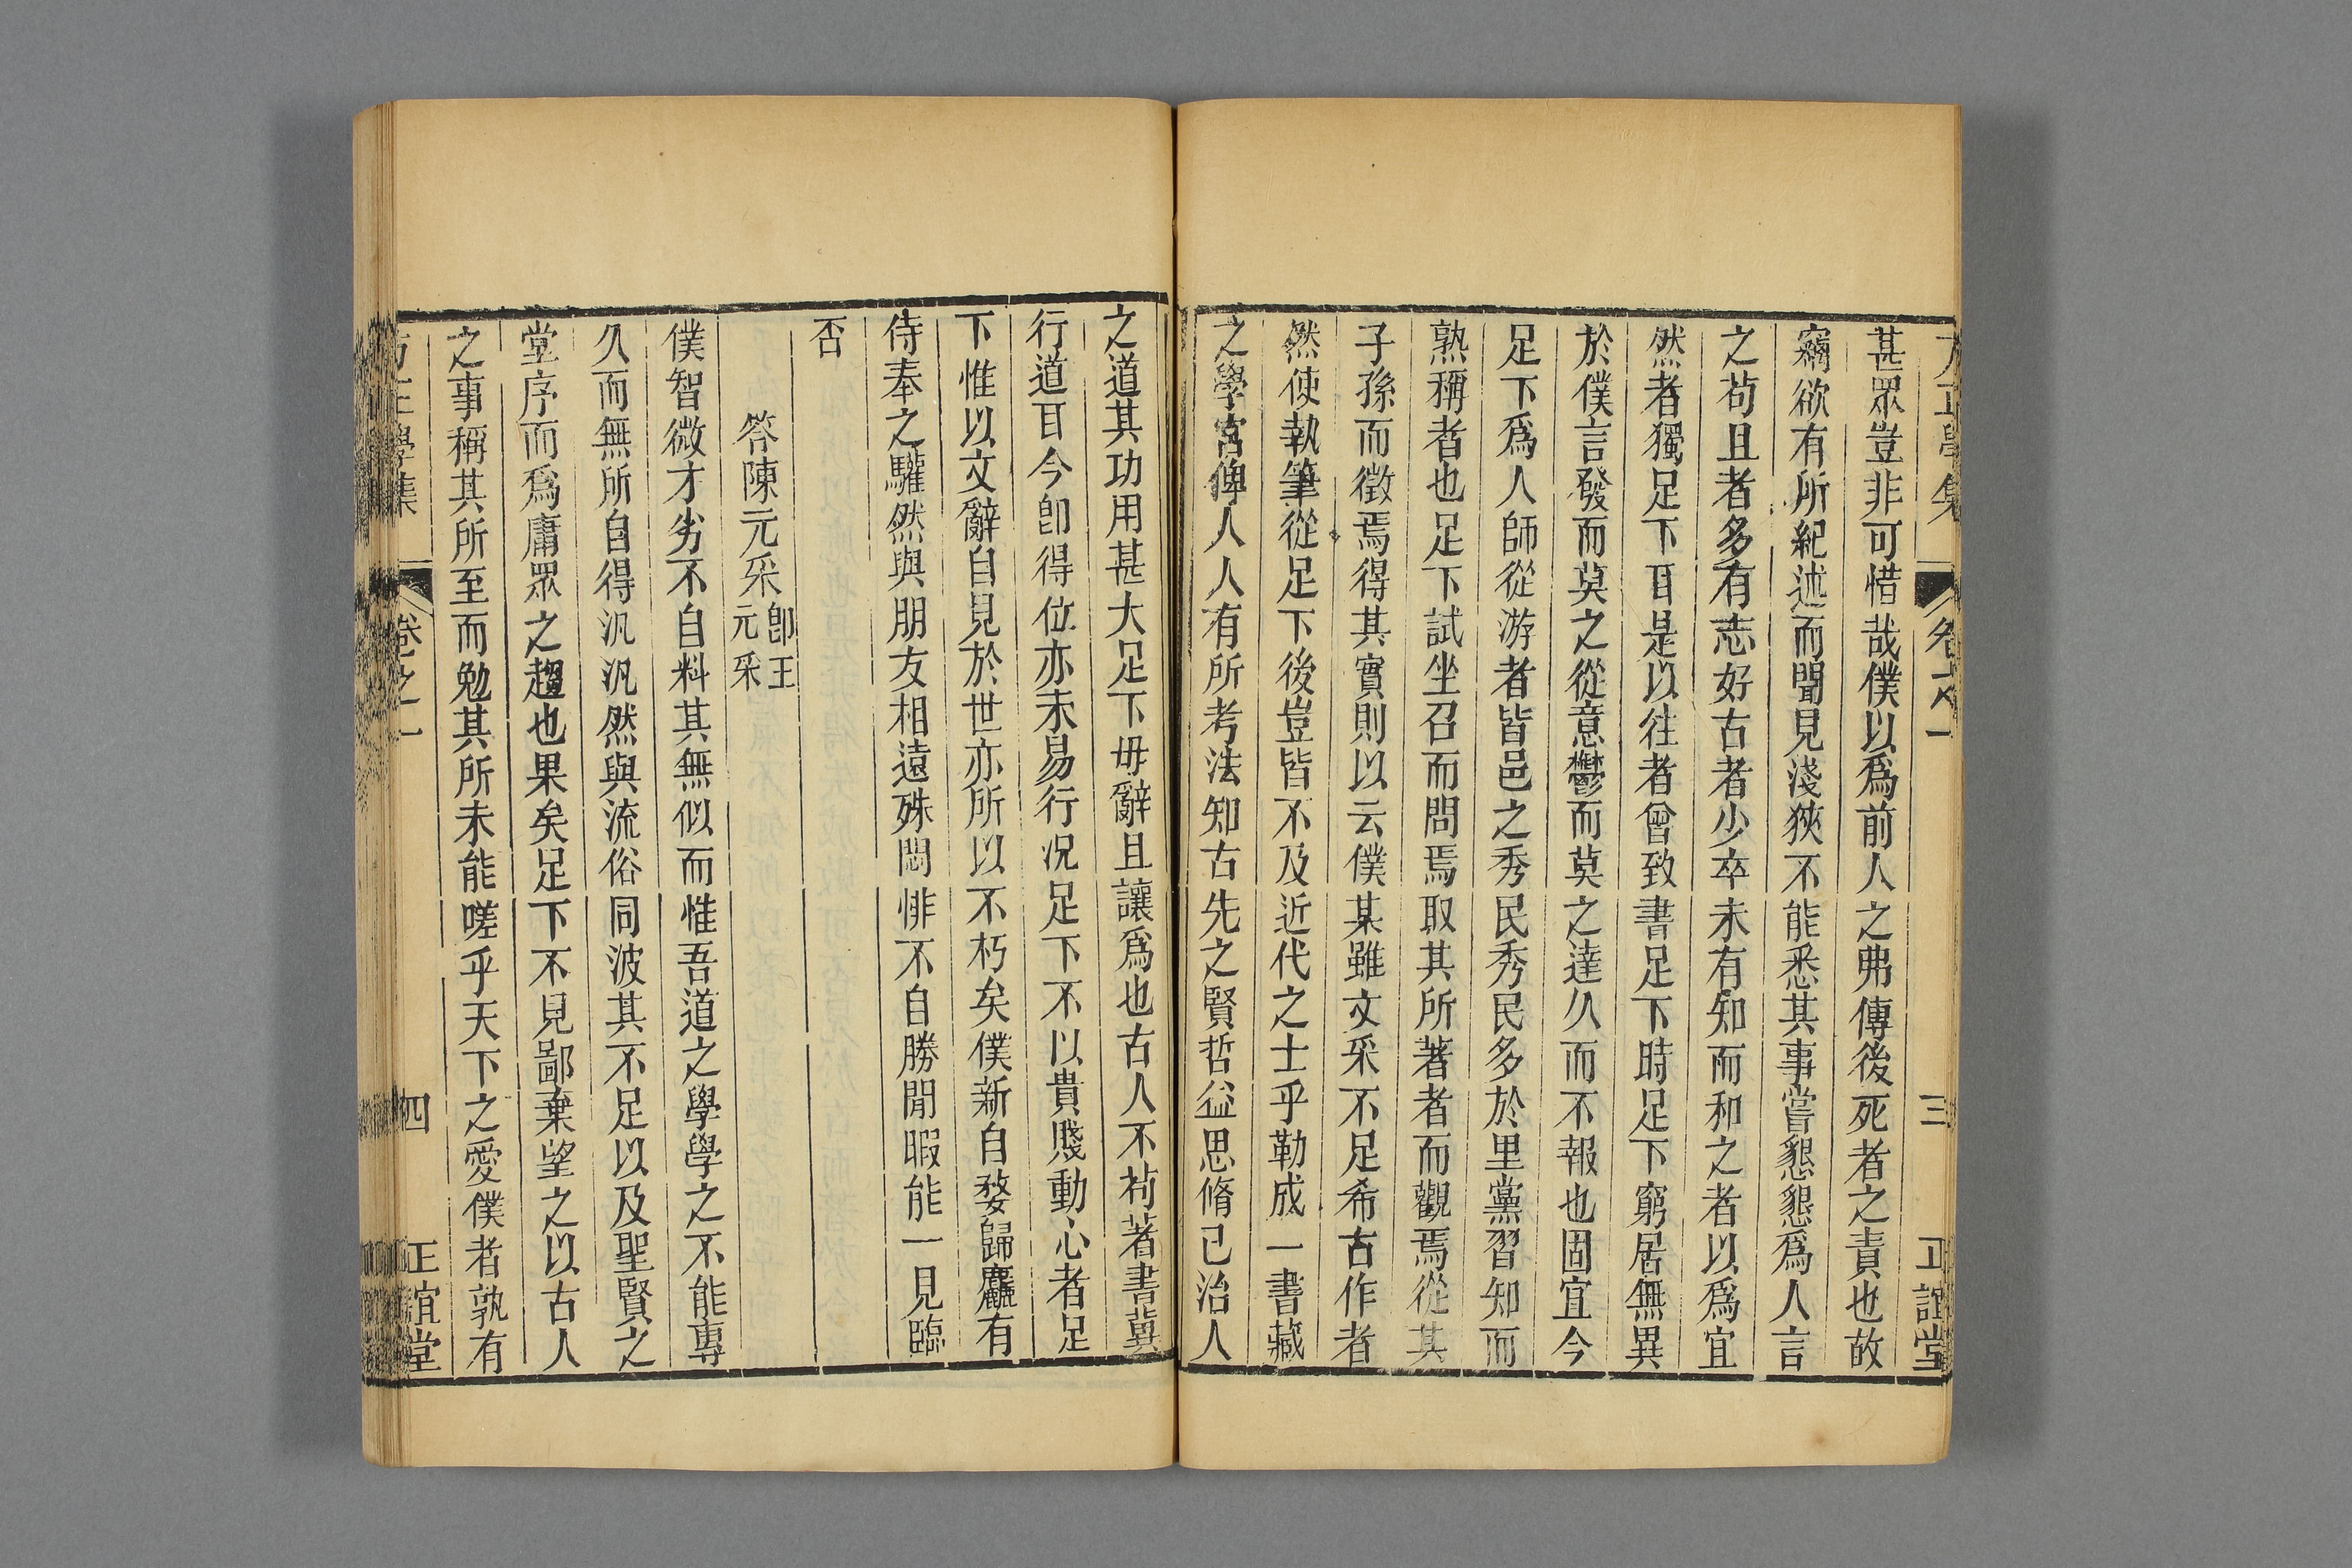 方正學集 卷之一 三 正誼堂
甚眾豈非可惜哉僕以爲前人之弗傳後死者之責也故
竊欲有所紀述而聞見淺狹不能悉其事嘗懇懇爲人言
之茍且者多有志好古者少卒未有知而和之者以爲宜
然者獨足下耳是以往者曾致書足下時足下窮居無異
於僕言發而莫之從意鬱而莫之達久而不報也固宜今
足下爲人師從游者皆邑之秀民秀民多於里黨習知而
熟稱者也足下試坐召而問焉取其所著者而觀焉從其
子孫而徵焉得其實則以云僕某雖文采不足希古作者
然使執筆從足下後豈皆不及近代之士乎勒成一書藏
之學宮俾人人有所考法知古先之賢哲益思脩己治人
之道其功用甚大足下毋辭且讓爲也古人不茍著書冀
行道耳今卽得位亦未易行況足下不以貴賤動心者足
下惟以文辭自見於世亦所以不朽矣僕新自婺歸麤有
侍奉之驩然與朋友相遠殊悶悱不自勝閒暇能一見臨
否
答陳元采卽王元采
僕智微才劣不自料其無似而惟吾道之學學之不能專
久而無所自得汎汎然與流俗同波其不足以及聖賢之
堂序而爲庸眾之趨也果矣足下不見鄙棄望之以古人
之事稱其所至而勉其所未能嗟乎天下之愛僕者孰有
方正學集 卷之一 四 正誼堂